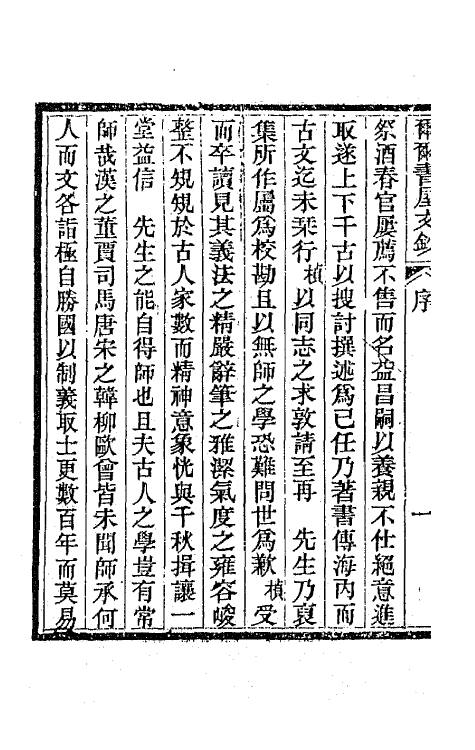 爾爾書屋文鈔 序 一
祭酒春官屢薦不售而名益昌嗣以養親不仕絕意進
取遂上下千古以搜討撰述爲己任乃著書傳海內而
古文迄未栞行楨以同志之求敦請至再 先生乃裒
集所作屬爲校勘且以無師之學恐難問世爲歉楨受
而卒讀見其義法之精嚴辭筆之雅潔氣度之雍容峻
整不規規於古人家數而精神意象恍與千秋揖讓一
堂益信 先生之能自得師也且夫古人之學豈有常
師哉漢之董賈司馬唐宋之韓柳歐曾皆未聞師承何
人而文各詣極自勝國以制義取士更數百年而莫易